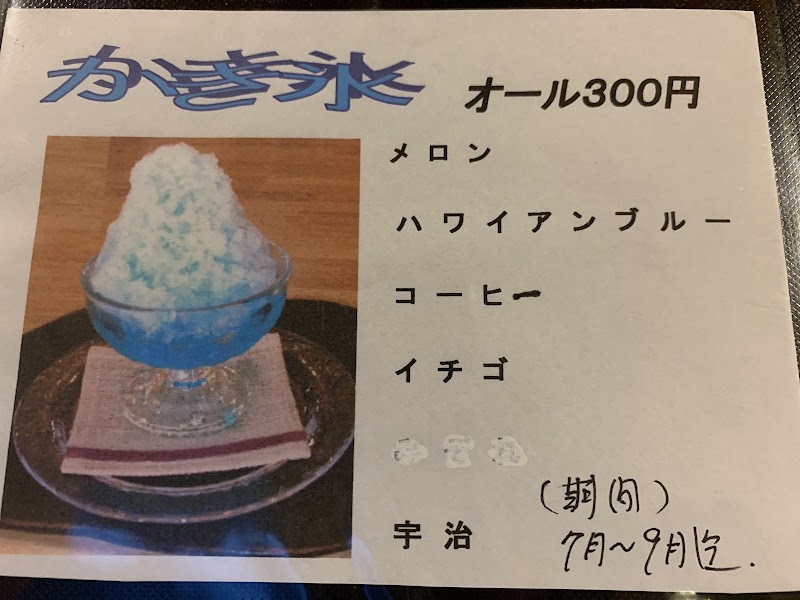 かき氷 オール300円
メロン
ハワイアンブルー
コーヒー
イチゴ
宇治
(期間)
7月~9月迄.